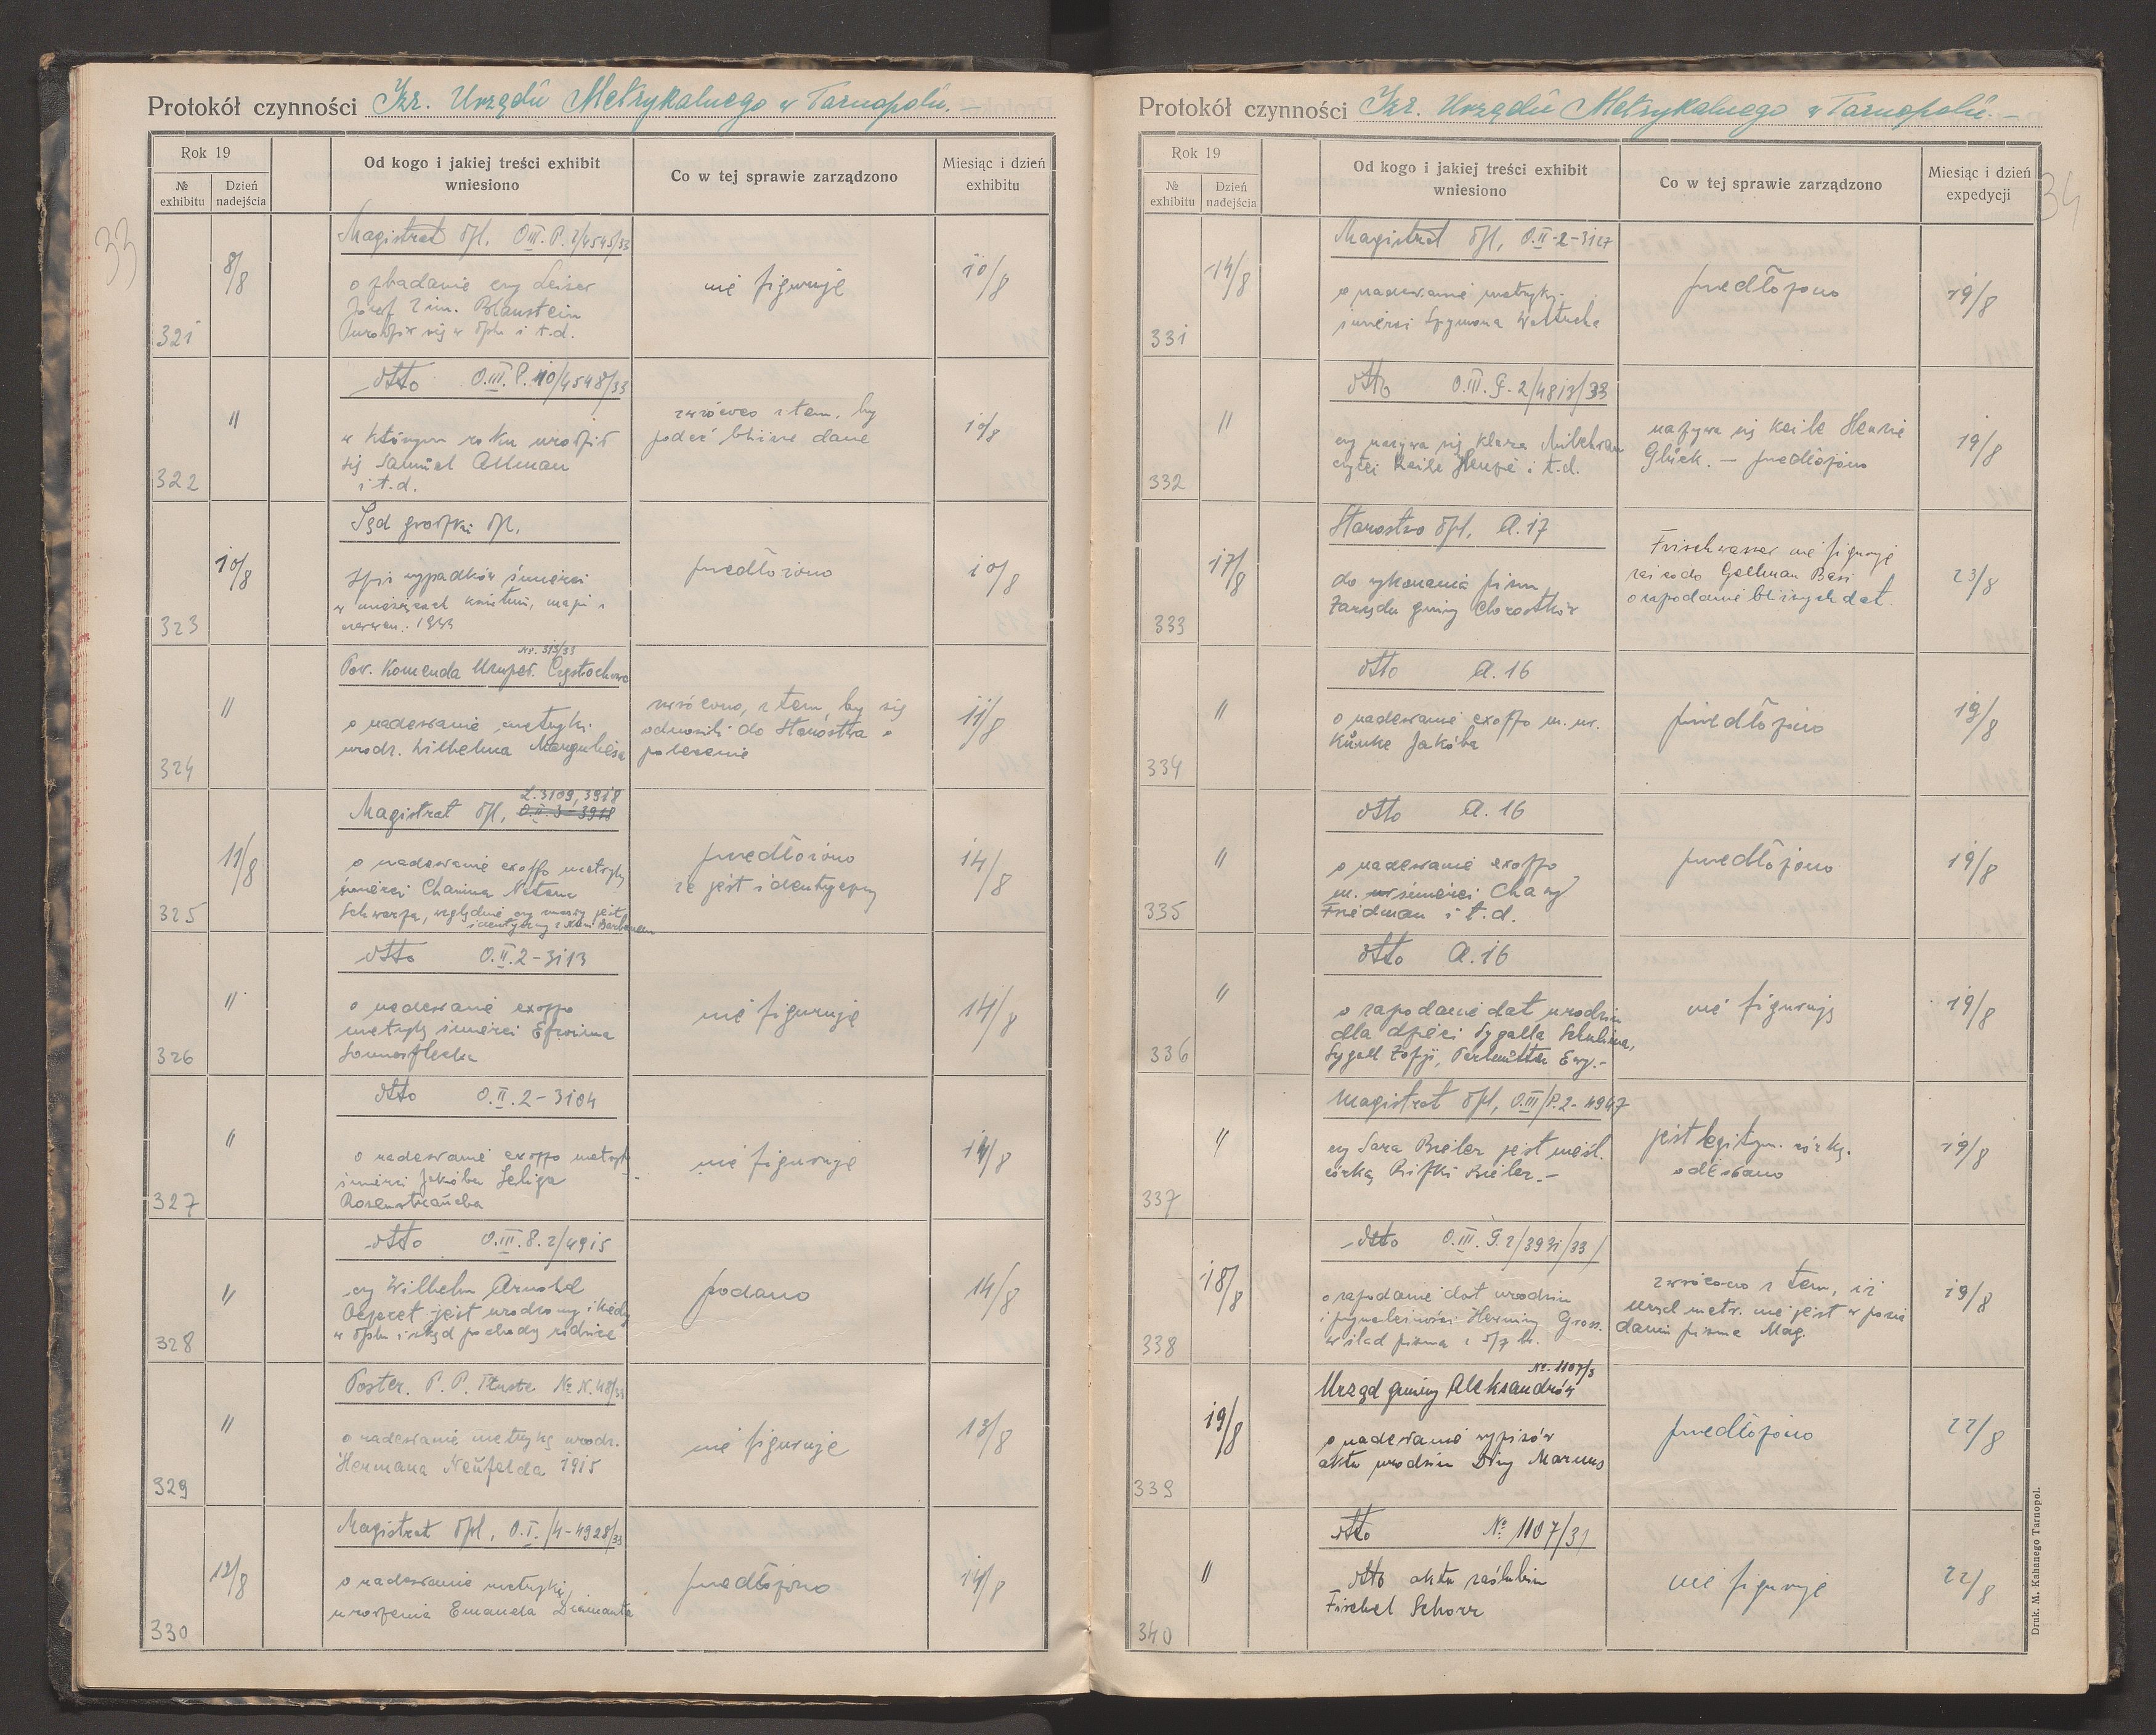 33
Protokół czynności Izr. Urzędu Metrykalnego w Tarnopolu. —
Rok 19
№ exhibitu
Dzień nadejścia
Od kogo i jakiej treści exhibit wniesiono
Co w tej sprawie zarządzono
Miesiąc i dzień exhibitu
321
8/8
Magistrat Tpl. O.III. P. 2/4545/33
o zbadanie czy Leiser
Józef 2 im. Blaustein
urodził się w Tplu i t.d.
nie figuruje
10/8
322
"
dtto O.III. P. 10/4548/33
w którym roku urodził
się Samuel Allman
i t.d.
zwrócono z tem, by
podać bliższe dane
10/8
323
10/8
Sąd grodzki Tpl.
spis wypadków śmierci
w miesiącach kwietniu, maju i
czerwcu 1933
przedłożono
10/8
324
"
No. 515/33
Pow. Komenda Uzupeł. Częstochowa
o nadesłanie metryki
urodz. Wilhelma Marguliesa
zwrócono, z tem, by się
odnosili do Starostwa o
polecenie
11/8
325
11/8
L. 3109, 3918
Magistrat Tpl, O.II. 3-3918
o nadesłanie exoffo metryky
śmierci Chaima Natana
Schwarza, względnie czy zmarły jest
identyczny z
przedłożono
że jest identyczny
14/8
326
"
dtto O.II.2-3113
o nadesłanie exoffo
metryky śmierci Efroima
nie figuruje
14/8
327
"
dtto O.II.2-3104
o nadesłanie exoffo metryky
śmierci Jakóba Seliga
Rosenstraucha
nie figuruje
14/8
328
"
dtto O.III.8.2/4915
czy Wilhelm Arnold
jest urodzony i kiedy
w Tplu i skąd pochodzą rodzice
podano
14/8
329
"
Poster. P. P. Tłuste No N. 48/33
o nadesłanie metrykę urodz.
Hermana Neufelda 1915
nie figuruje
13/8
330
12/8
Magistrat Tpl, O.I./4-4928/33
o nadesłanie metryki
urodzenia Emanuela Diamanta
przedłożono
14/8
34
Protokół czynności Izr. Urzędu Metrykalnego w Tarnopolu. —
Rok 19
№ exhibitu
Dzień nadejścia
Od kogo i jakiej treści exhibit wniesiono
Co w tej sprawie zarządzono
Miesiąc i dzień expedycji
331
14/8
Magistrat Tpl, O.II-2-3127
o nadesłanie metryki
śmierci Szymona Wallacha
przedłożono
19/8
332
"
dtto O.III. G. 2/4813/33
czy nazywa się Klara
czyli Keile Henzie i t.d.
nazywa się Keile Henzie
Glück. — przedłożono
19/8
333
17/8
Starostwo Tpl, A.17
do wykonania pism
Zarządu gminy Chorostków
Frischwasser nie figuruje
zaś co do Gellman Basi
o zapodanie bliższych dat.
23/8
334
"
dtto A.16
o nadesłanie exoffo m. ur.
Künke Jakóba
przedłożono
19/8
335
"
dtto A.16
o nadesłanie exoffo
m. śmierci Chany
Friedman i t.d.
przedłożono
19/8
336
"
dtto A.16
o zapodanie dat urodzin
dla dzieci Sygalla Schulima,
Sygall Zofji, Perlmutter Ewy.-
nie figurują
19/8
337
"
Magistrat Tpl, O.III/P.2-4947
czy Sara Bieler jest nieśl.
córką Rifki Bieler.-
jest legitym. córką.
odesłano
19/8
338
18/8
dtto O.III. G.2/3931/33/
o zapodanie dat urodzin
i przynależności Herminy Gross.
w ślad pisma z 5/7 br.
zwrócono z tem, iż
Urząd metr. nie jest w posia
daniu pisma Mag.
19/8
339
19/8
No. 1107/3
Urząd gminy Aleksandrów
o nadesłanie wypisów
aktu urodzin Diny Marcus
przedłożono
22/8
340
"
dtto No 1107/31
dtto aktu zaślubin
Fischel Schorr
nie figuruje
22/8
Druk. M. Kahanego Tarnopol.